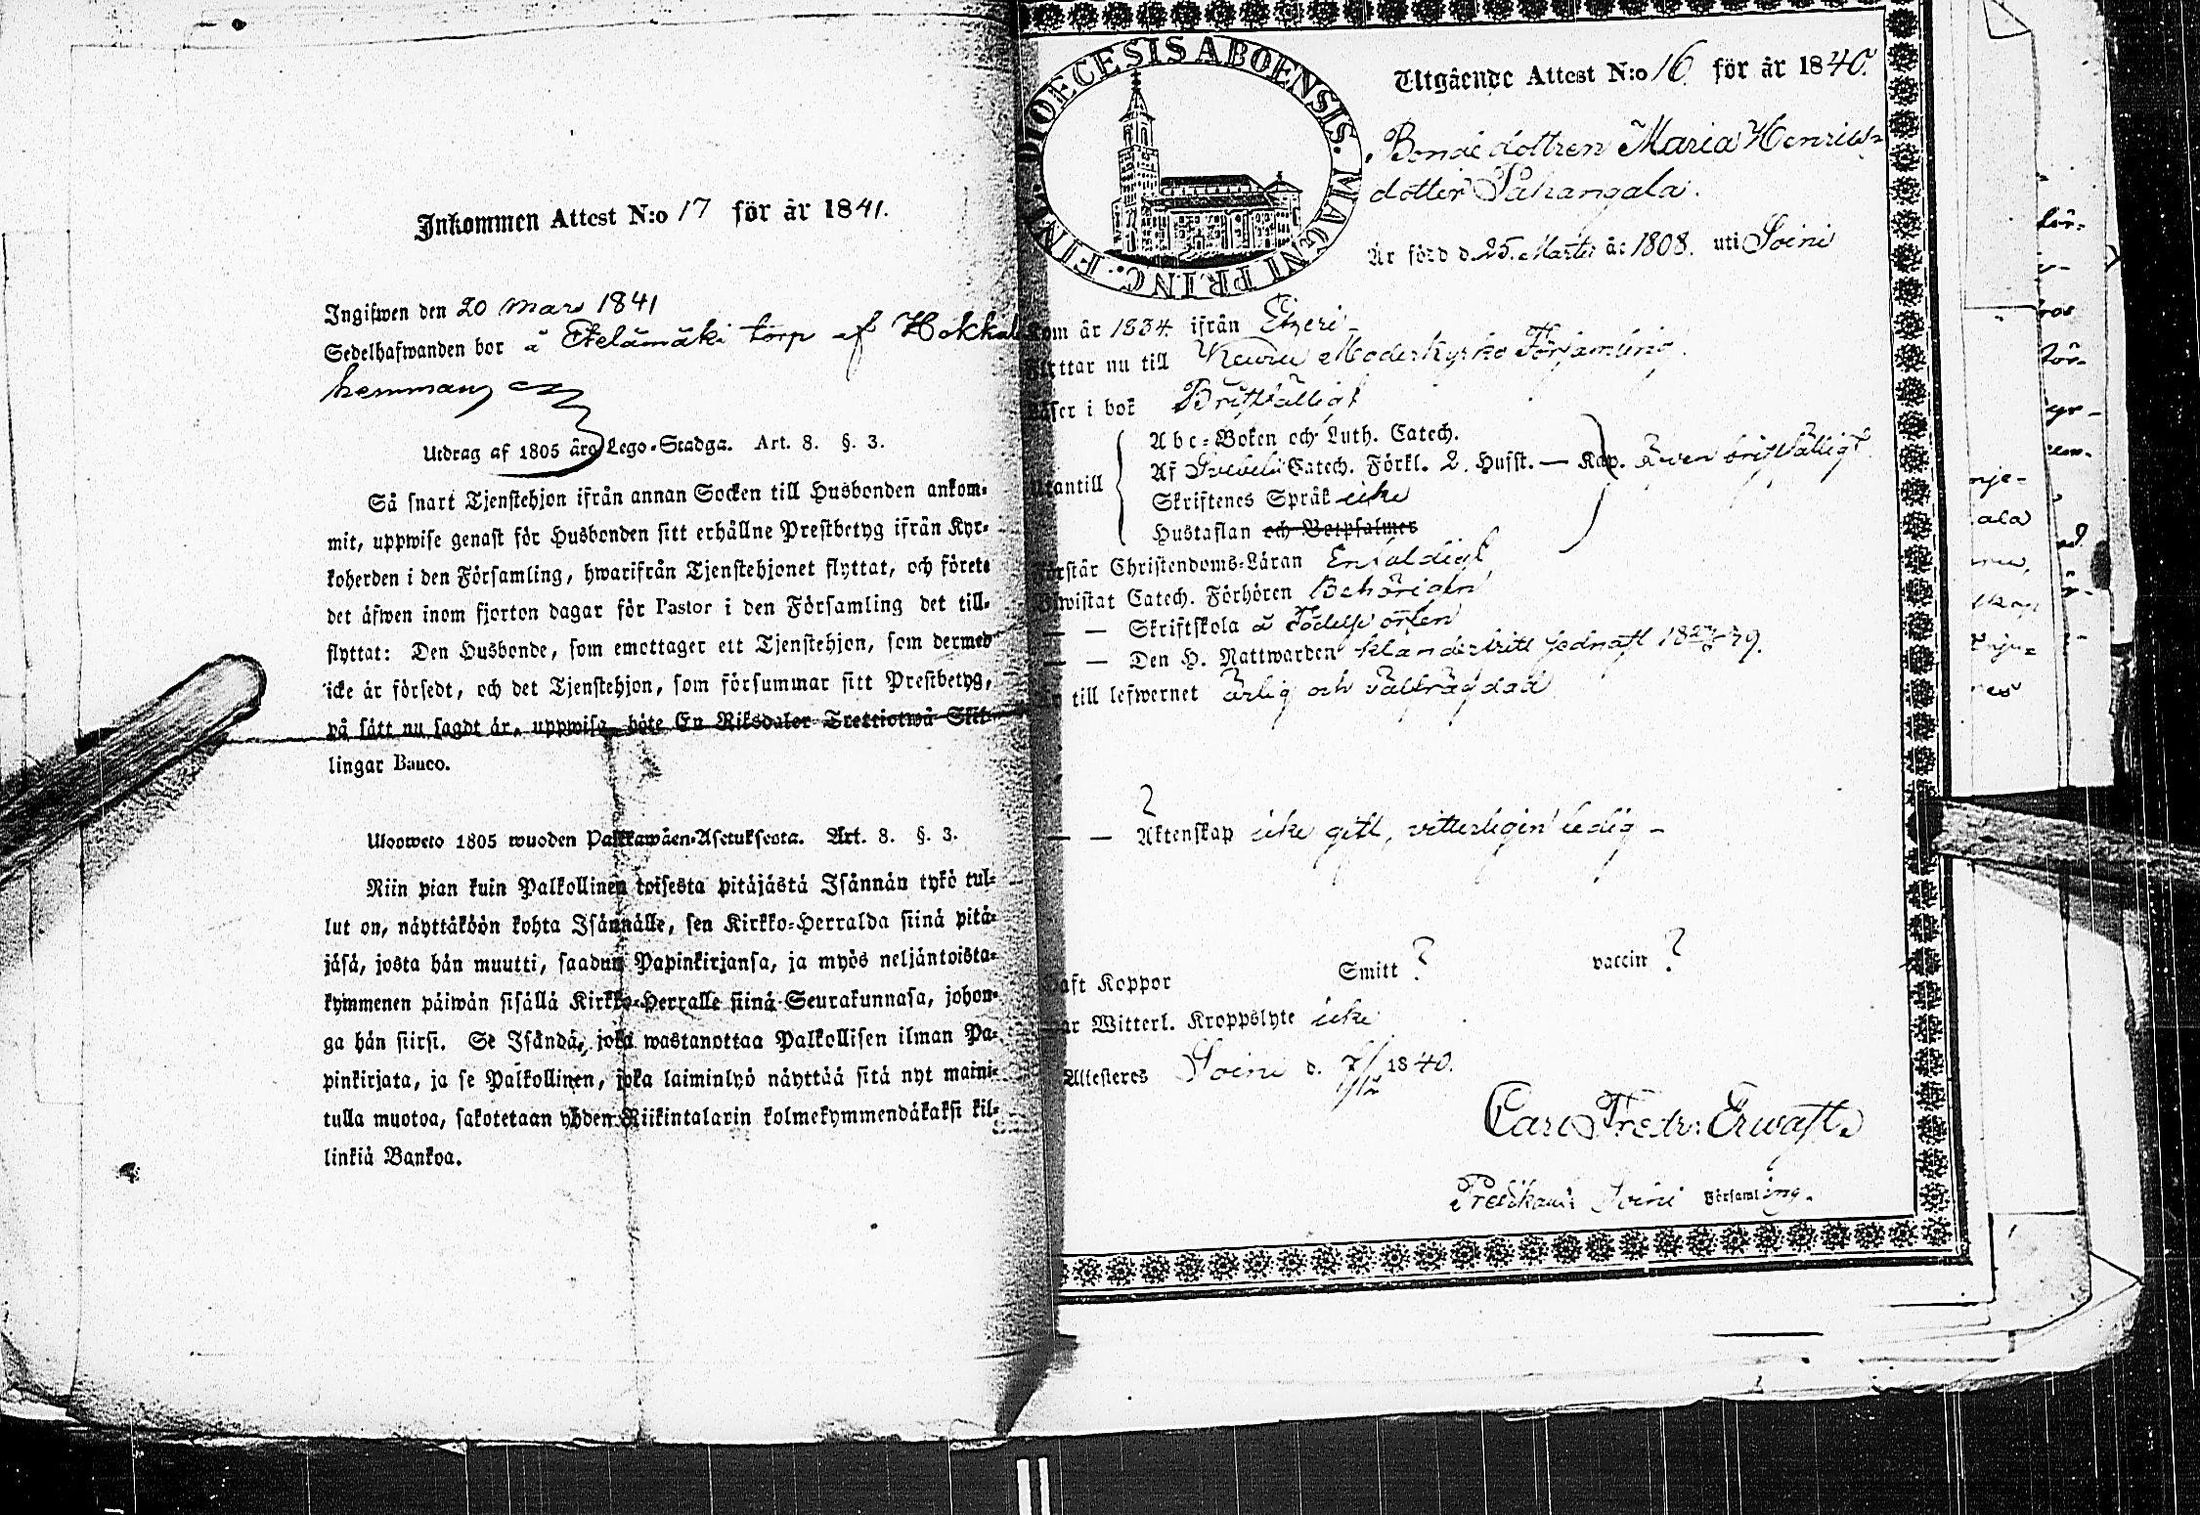 Inkommen Attest N:o 17 för år 1841.
Ingifwen den 20 Mars 1841
Sedelhafwanden bor å Etelämäki torp af Hokkala
hemman
Utdrag af 1805 års Lego-Stadga. Art. 8. §. 3.
Så snart Tjenstehjon ifrån annan Socken till Husbonden ankom-
mit, uppwise genast för Husbonden sitt erhållne Prestbetyg ifrån Kyr-
koherden i den Församling, hwarifrån Tjenstehjonet flyttat, och förete
det äfwen inom fjorton dagar för Pastor i den Församling det till-
flyttat: Den Husbonde, som emottager ett Tjenstehjon, som dermed
icke är försedt, och det Tjenstehjon, som försummar sitt Prestbetyg,
på sätt nu sagdt är, uppwisa, böte En Riksdaler Trettiotwå Skil-
lingar Banco.
Ulosweto 1805 wuoden Palkkawäen-Asetuksesta. Art. 8. §. 3.
Niin pian kuin Palkollinen toisesta pitäjästä Isännän tykö tul-
lut on, näyttäköön kohta Isännälle, sen Kirkko-Herralda siinä pitä-
jäsä, josta hän muutti, saadun Papinkirjansa, ja myös neljäntoista-
kymmenen päiwän sisällä Kirkko-Herralle siinä Seurakunnasa, johon-
ga hän siirsi. Se Isändä, joka wastanottaa Palkollisen ilman Pa-
pinkirjata, ja se Palkollinen, joka laiminlyö näyttää sitä nyt maini-
tulla muotoa, sakotetaan yhden Riikintalarin kolmekymmendäkaksi kil-
linkiä Bankoa.
DIOECESIS ABOENSIS. MAGNI PRINC. FINL.
Utgående Attest N:o 16 för år 1840.
Bondedottren Maria Henriks-
dotter Pahangala.
Är född d. 25. Martii år 1808. uti Soini
Kom år 1834. ifrån Etzeri
Flyttar nu till Keuru Moderkyrko Församling.
Läser i bok Bristfälligt
Utantill
Abc-Boken och Luth. Catech.
Af Svebelii Catech. Förkl. 2. Hufst. — Kap. Även bristfälligt
Skriftenes Språk icke
Hustaflan och Botpsalmer
Förstår Christendoms-Läran Enfaldigt
Biwistat Catech. Förhören Behörigen
— — Skriftskola å Födelse orten
— — Den H. Nattwarden klanderfritt sednast 1839.
till lefwernet ärlig och välfrägdad
— — Äktenskap icke gift, vitterligen ledig —
Haft Koppor Smitt ? vaccin ?
Har Witterl. Kroppslyte icke
Attesteres Soini d. 7/12 1840.
Carl Fredr: Erwast.
Predikant i Soini Församling.